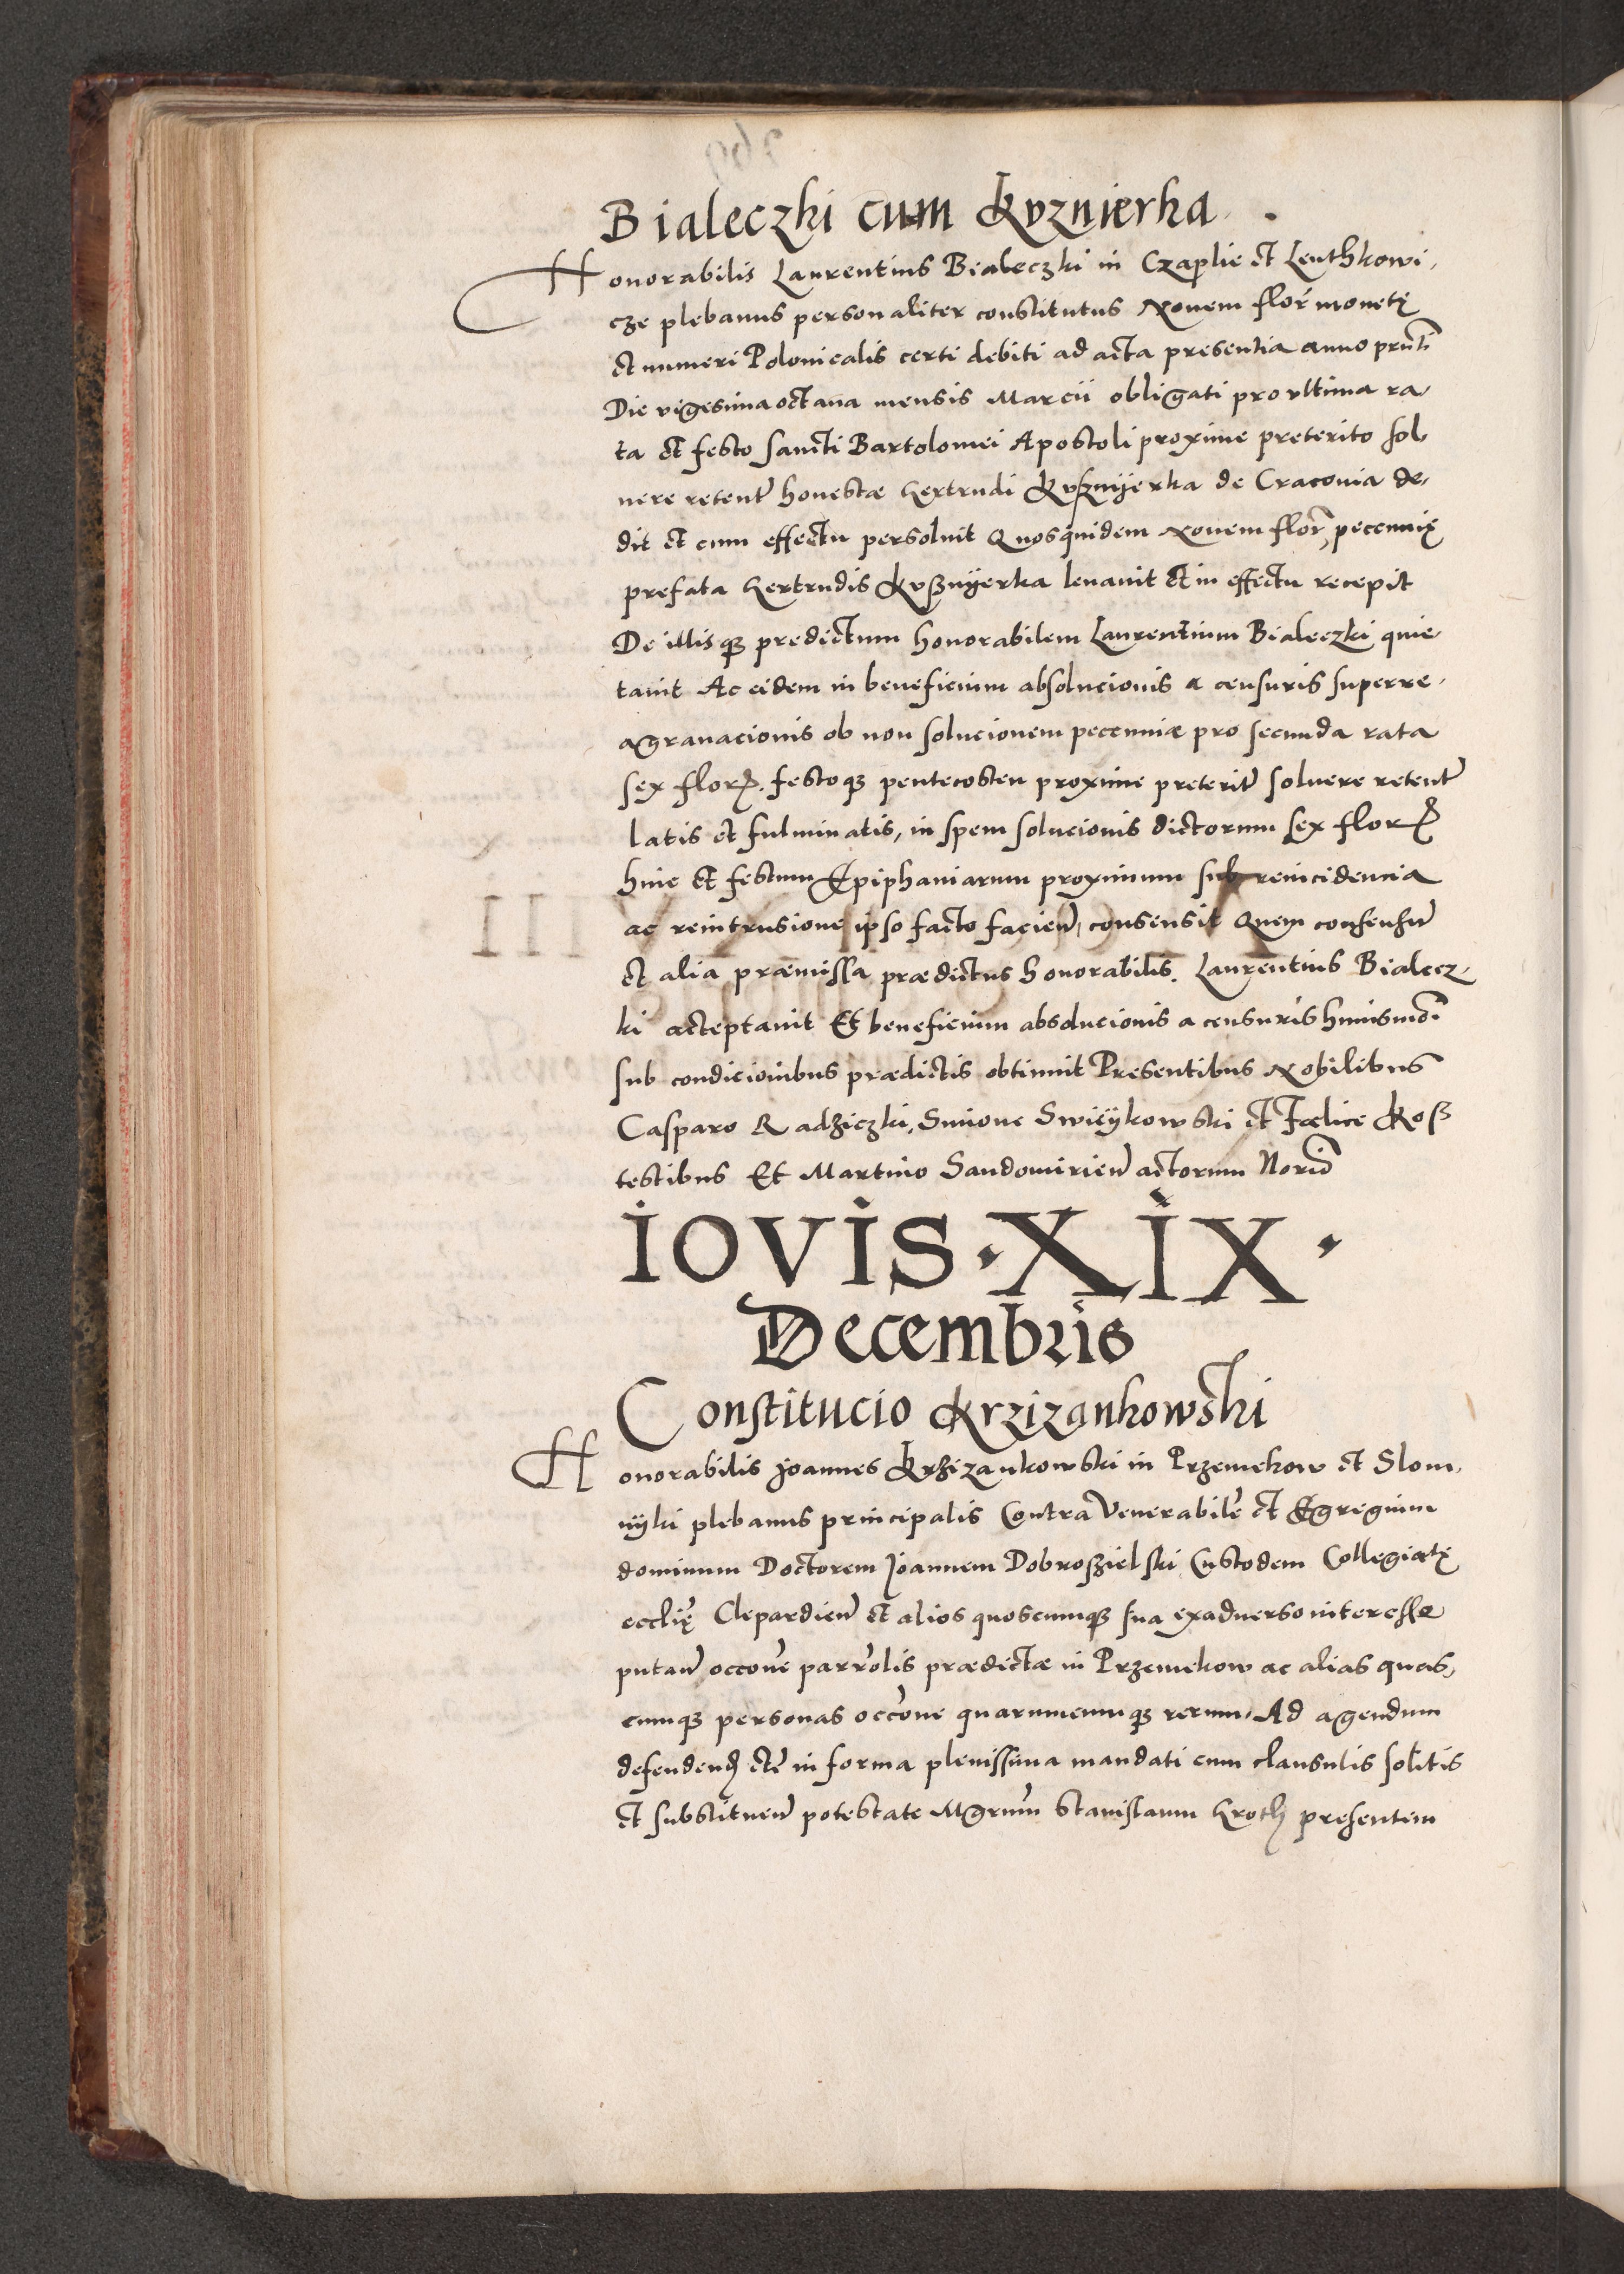 Bialeczki cum Kvznierka .
Honorabilis Laurentius Bialeczki in Czaplie et Lenthkowi,
cze plebanus personaliter constitutus Novem flor monetę
et numeri Polonicalis certi debiti ad acta presentia anno prnti
Die vigesima octava mensis Marcii obligati pro ultima ra,
ta et festo Sancti Bartolomei Apostoli proxime preterito sol
vere retent honestæ Gertrudi Kvsznijerka de Craconia de,
dit et cum effectu persolvit Quosquidem Novem flor pecconię
prefata Gertrudis Kvsznijerka levavit et in effectu recepit
De illisq predictum honorabilem Laurentium Bialeczki quie,
tavit Ac eidem in beneficium absolucionis a censuris superre,
agravacionis ob non solucionem peccuniæ pro secunda rata
sex flor. festoq pentecosten proxime preterit solvere retent
latis et fulminatis, in spem solucionis dictorum sex flor
hinc et festum Epiphaniarum proximum sub reincidencia
ac reintrusione ipso facto facien, consensit Quem consensum
et alia præmissa prædictus honorabilis Laurentius Bialecz,
ki acceptavit Et beneficium absolucionis a censuris huiusmoi
sub condicionibus prædictis obtinuit Presentibus Nobilibus
Casparo Radziczki, Simone Swieijkowski et Fælice Kosz
testibus Et Martino Sandomirien actorum Norio
IOVIS · XIX ·
Decembris
Constitucio Krzizankowski
Honorabilis Joannes Krzizankowski in Przemekow et Slom,
nijki plebanus principalis Contra Venerabile et Egregium
dominum Doctorem Joannem Dobroszielski Custodem Collegiatę
ecclię Clepardien et alios quoscumq sua exadverso interesse
putan occone parrolis prædictæ in Przemekow ac alias quas,
cumq personas occone quarumcumq rerum, Ad agendum
defendend etc in forma plenissima mandati cum clausulis solitis
et substituen potestate Mgrum Stanislaum Groth presentem